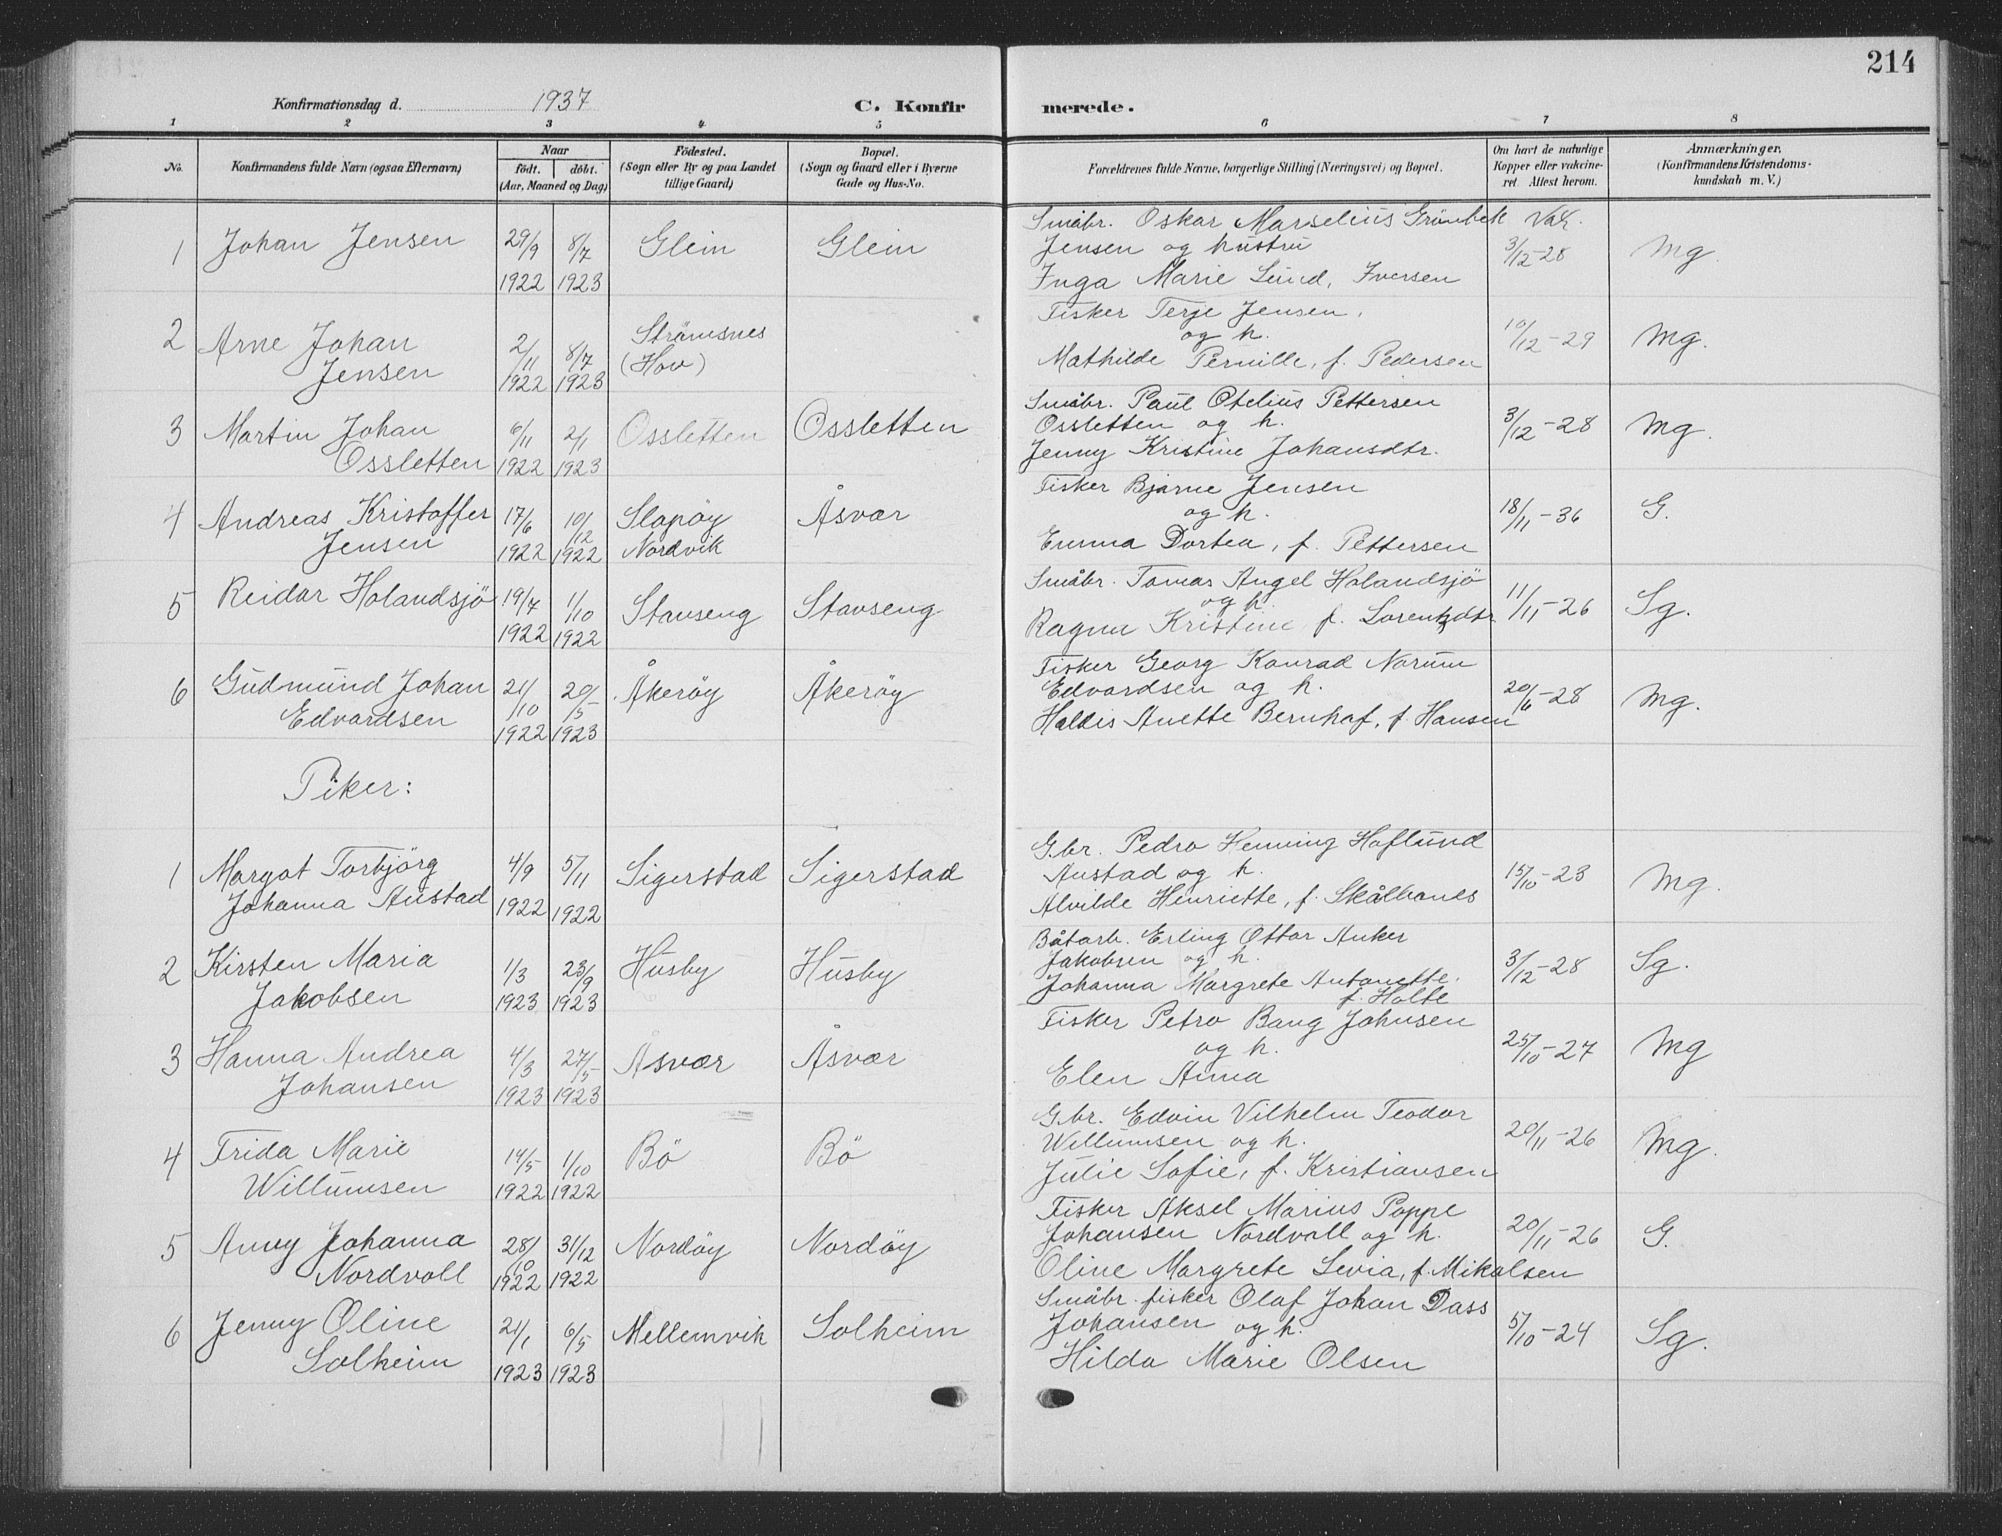 214
Konfirmationsdag d. 1937 C. Konfirmerede.
1 2 3 4 5 6 7 8
No.
Konfirmandens fulde Navn (ogsaa Efternavn)
Naar
født. døbt.
(Aar, Maaned og Dag)
Fødested.
(Sogn eller By og paa Landet
tillige Gaard)
Bopæl.
(Sogn og Gaard eller i Byerne
Gade og Hus-No.
Forældrenes fulde Navne, borgerlige Stilling (Næringsvei) og Bopæl.
Om havt de naturlige
Kopper eller vakcine-
ret Attest herom.
Anmærkninger.
(Konfirmandens Kristendoms-
kundskab m. V.)
1 Johan Jensen 29/9 1922 8/7 1923 Glein Glein
Småbr. Oskar Marselius Grönbek
Jensen og hustru
Inga Marie Lund, Iversen
Vak.
3/12-28 Mg.
2 Arne Johan
Jensen
2/11 1922 8/7 1923
Strömsnes
(Hov)
Fisker Terje Jensen,
og h.
Mathilde Pernille, f. Pedersen
10/12-29 Mg.
3 Martin Johan
Ossletten
6/11 1922 2/1 1923 Ossletten Ossletten
Småbr. Paul Otelius Pettersen
Ossletten og h.
Jenny Kristine Johansdtr.
3/12-28 Mg.
4 Andreas Kristoffer
Jensen
17/6 1922 10/12 1922
Slapöy
Nordvik
Åsvær
Fisker Bjarne Jensen
og h.
Emma Dortea, f. Pettersen
18/11-36 G.
5 Reidar Holandsjö 19/7 1922 1/10 1922 Stavseng Stavseng
Småbr. Tomas Angel Holandsjö
og h.
Ragna Kristine f. Lorentzdtr
11/11-26 Sg.
6 Gudmund Johan
Edvardsen
21/10 1922 20/5 1923 Åkeröy Åkeröy
Fisker Georg Konrad Norum
Edvardsen og h.
Haldis Anette Bernhof, f. Hansen
20/6-28 Mg.
Piker:
1 Margot Torbjörg
Johanna Austad
4/9 1922 5/11 1922 Sigerstad Sigerstad
Gbr. Pedro Henning Haflund
Austad og h.
Alvilde Henriette, f. Skålbones
15/10-23 Mg.
2 Kirsten Maria
Jakobsen
1/3 1923 23/9 1923 Husby Husby
Båtarb. Erling Ottar Anker
Jakobsen og h.
Johanna Margrete Antonette.
f. Holte
3/12-28 Sg.
3 Hanna Andrea
Johansen
4/3 1923 27/5 1923 Åsvær Åsvær
Fisker Petro Bang Johnsen
og h.
Elen Anna
25/10-27 Mg
4 Frida Marie
Willumsen
14/5 1922 1/10 1922 Bö Bö
Gbr. Edvin Vilhelm Teodor
Willumsen og h.
Julie Sofie, f. Kristiansen
20/11-26 Mg.
5 Anny Johanna
Nordvoll
28/10 1922 31/12 1922 Nordöy Nordöy
Fisker Aksel Marius Poppe
Johansen Nordvoll og h.
Oline Margrete Levia, f. Mikalsen
20/11-26 G.
6 Jenny Oline
Solheim
21/1 1923 6/5 1923 Mellemvik Solheim
Småbr. fisker Olaf Johan Dass
Johansen og h.
Hilda Marie Olsen
5/10-24 Sg.